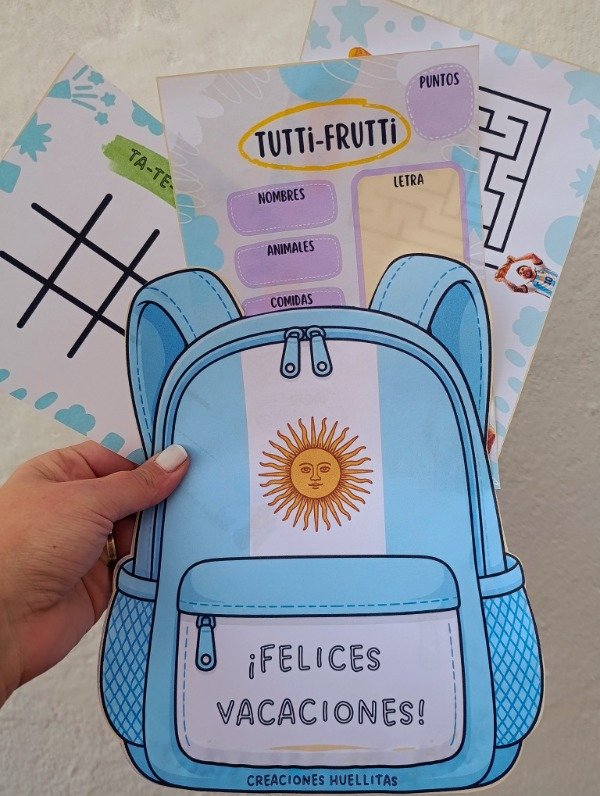 PUNTOS
TUTTi-FRUTTi
TA-TE-
NOMBRES
LETRA
ANIMALES
COMIDAS
¡FELICES
VACACIONES!
CREACIONES HUELLITAS